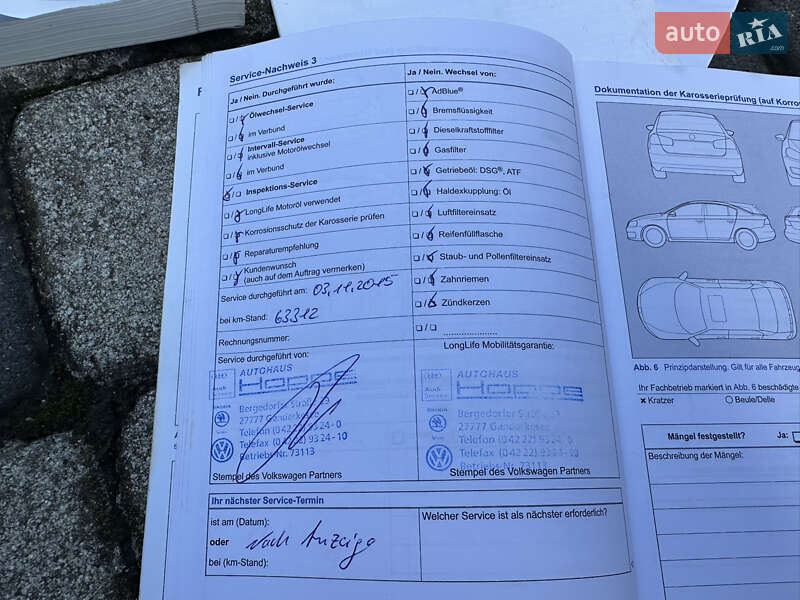 auto RIA .com
Service-Nachweis 3
Ja / Nein. Durchgeführt wurde:
Ölwechsel-Service
im Verbund
Intervall-Service
inklusive Motorölwechsel
im Verbund
Inspektions-Service
LongLife Motoröl verwendet
Korrosionsschutz der Karosserie prüfen
Reparaturempfehlung
Kundenwunsch
(auch auf dem Auftrag vermerken)
Service durchgeführt am: 03.11.2015
bei km-Stand: 63312
Rechnungsnummer:
Service durchgeführt von:
AUTOHAUS
Hoppe
Bergedorfer Straße
27777 Ganderkesee
Telefon (0 42 22) 93 24-0
Telefax (0 42 22) 93 24-10
Betriebs-Nr. 73113
Stempel des Volkswagen Partners
Ja / Nein. Wechsel von:
AdBlue®
Bremsflüssigkeit
Dieselkraftstofffilter
Gasfilter
Getriebeöl: DSG®, ATF
Haldexkupplung: Öl
Luftfiltereinsatz
Reifenfüllflasche
Staub- und Pollenfiltereinsatz
Zahnriemen
Zündkerzen
LongLife Mobilitätsgarantie:
Audi
Service
AUTOHAUS
Hoppe
Bergedorfer Straße
27777 Ganderkesee
Telefon (0 42 22) 93 24-0
Telefax (0 42 22) 93 24-10
Betriebs-Nr. 73113
Stempel des Volkswagen Partners
Ihr nächster Service-Termin
ist am (Datum):
oder nach Anzeige
bei (km-Stand):
Welcher Service ist als nächster erforderlich?
Dokumentation der Karosserieprüfung (auf Korros
Abb. 6 Prinzipdarstellung. Gilt für alle Fahrzeug
Ihr Fachbetrieb markiert in Abb. 6 beschädigte
× Kratzer ○ Beule/Delle
Mängel festgestellt? Ja:
Beschreibung der Mängel: